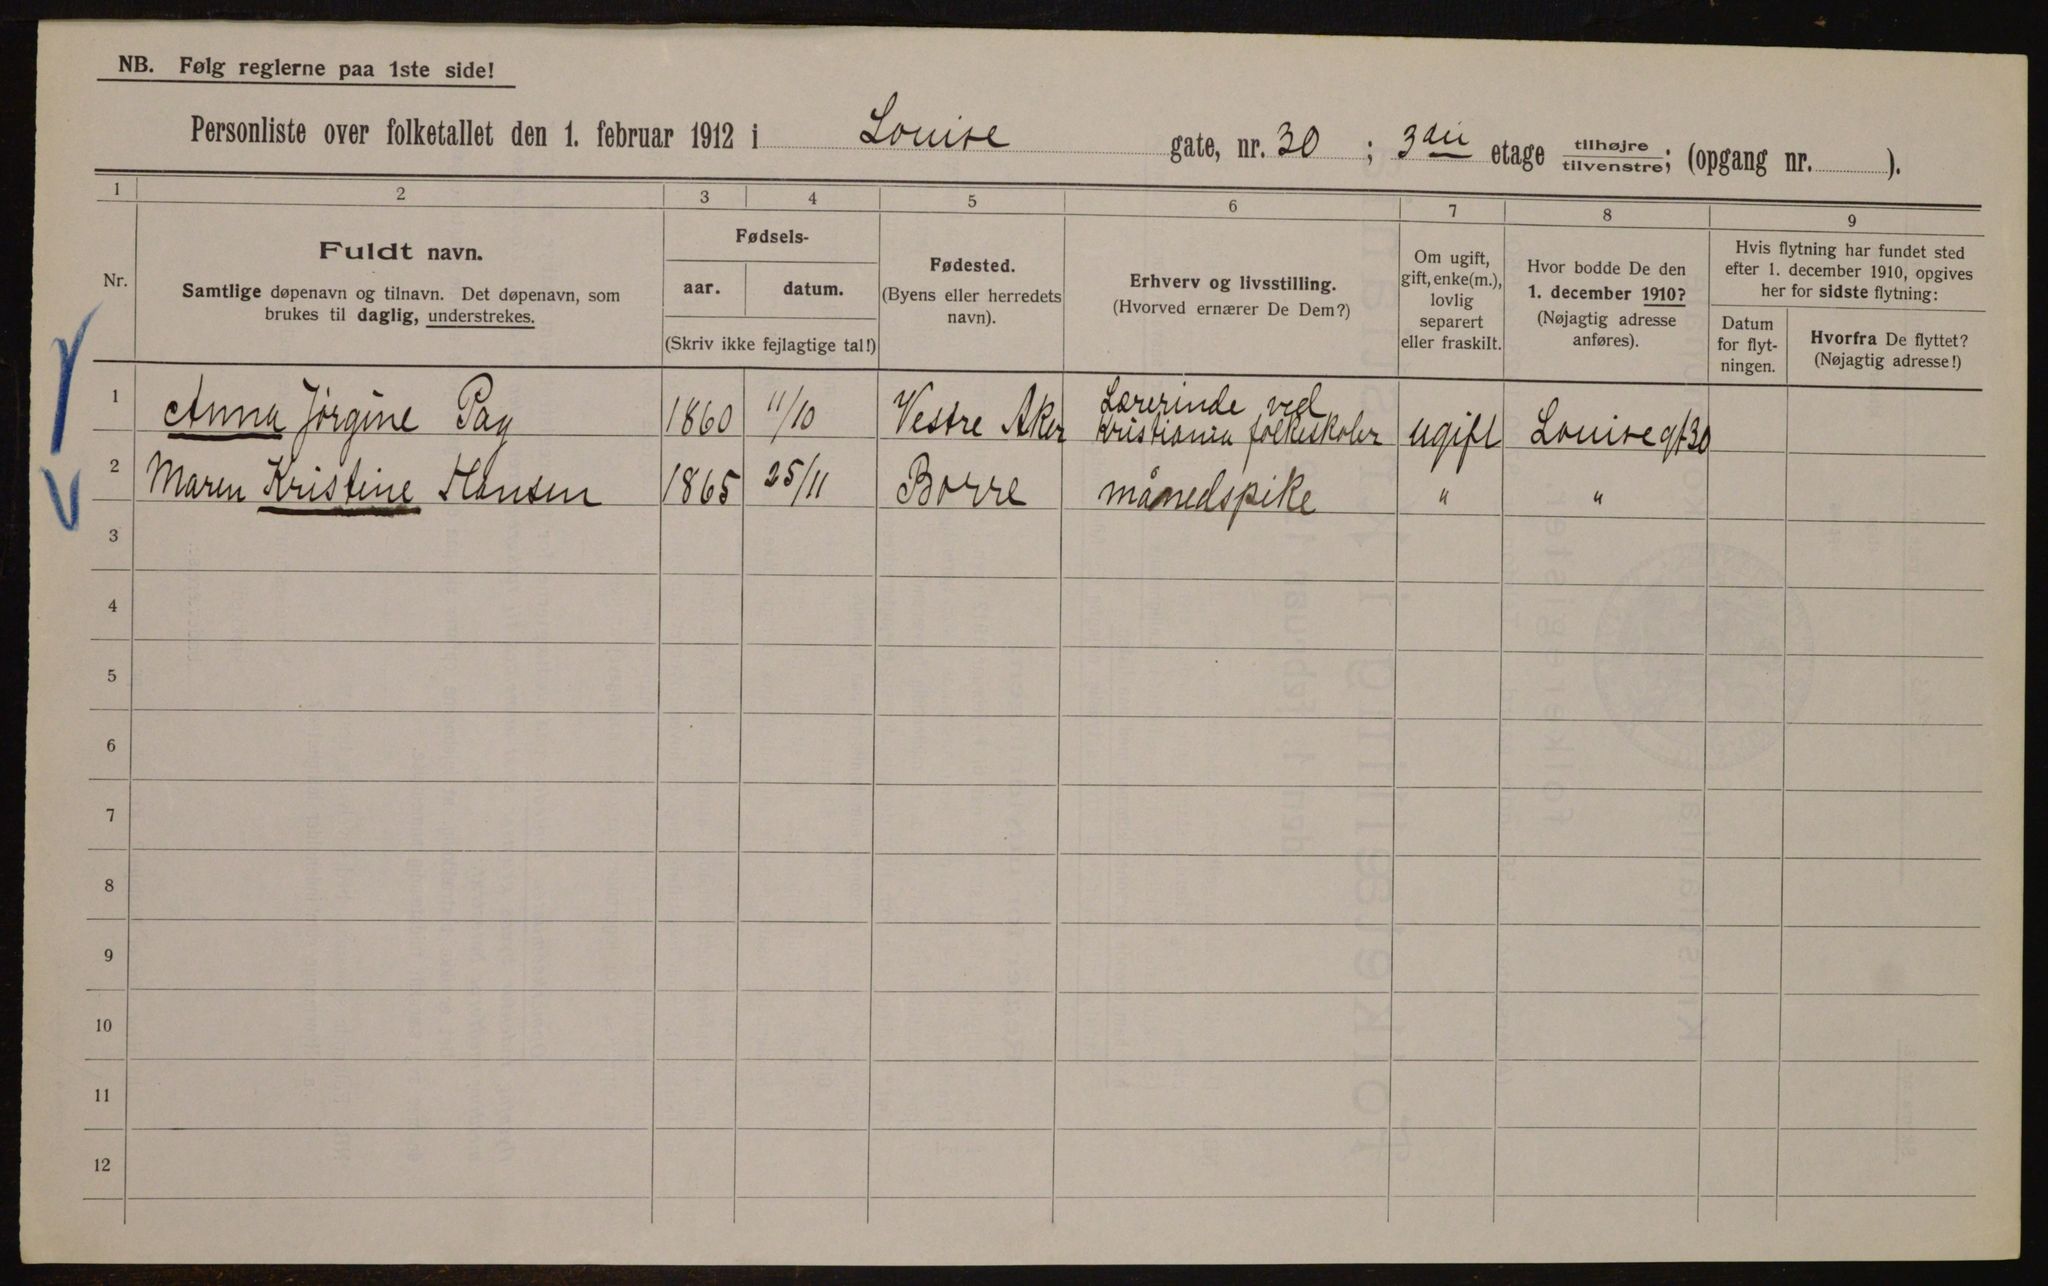 NB. Følg reglerne paa 1ste side!
Personliste over folketallet den 1. februar 1912 i Louise gate, nr. 30 ; 3die etage tilhøjre/tilvenstre; (opgang nr. ).
1 2 3 4 5 6 7 8 9
Nr.
Fuldt navn.
Samtlige døpenavn og tilnavn. Det døpenavn, som
brukes til daglig, understrekes.
Fødsels-
aar. datum.
(Skriv ikke fejlagtige tal!)
Fødested.
(Byens eller herredets
navn).
Erhverv og livsstilling.
(Hvorved ernærer De Dem?)
Om ugift,
gift, enke(m.),
lovlig
separert
eller fraskilt.
Hvor bodde De den
1. december 1910?
(Nøjagtig adresse
anføres).
Hvis flytning har fundet sted
efter 1. december 1910, opgives
her for sidste flytning:
Datum
for flyt-
ningen.
Hvorfra De flyttet?
(Nøjagtig adresse!)
1 Anna Jørgine 1860 11/10 Vestre Aker Lærerinde ved
Kristiania folkeskoler ugift Louisegt 30
2 Maren Kristine Hansen 1865 25/11 Borre månedspike " "
3
4
5
6
7
8
9
10
11
12